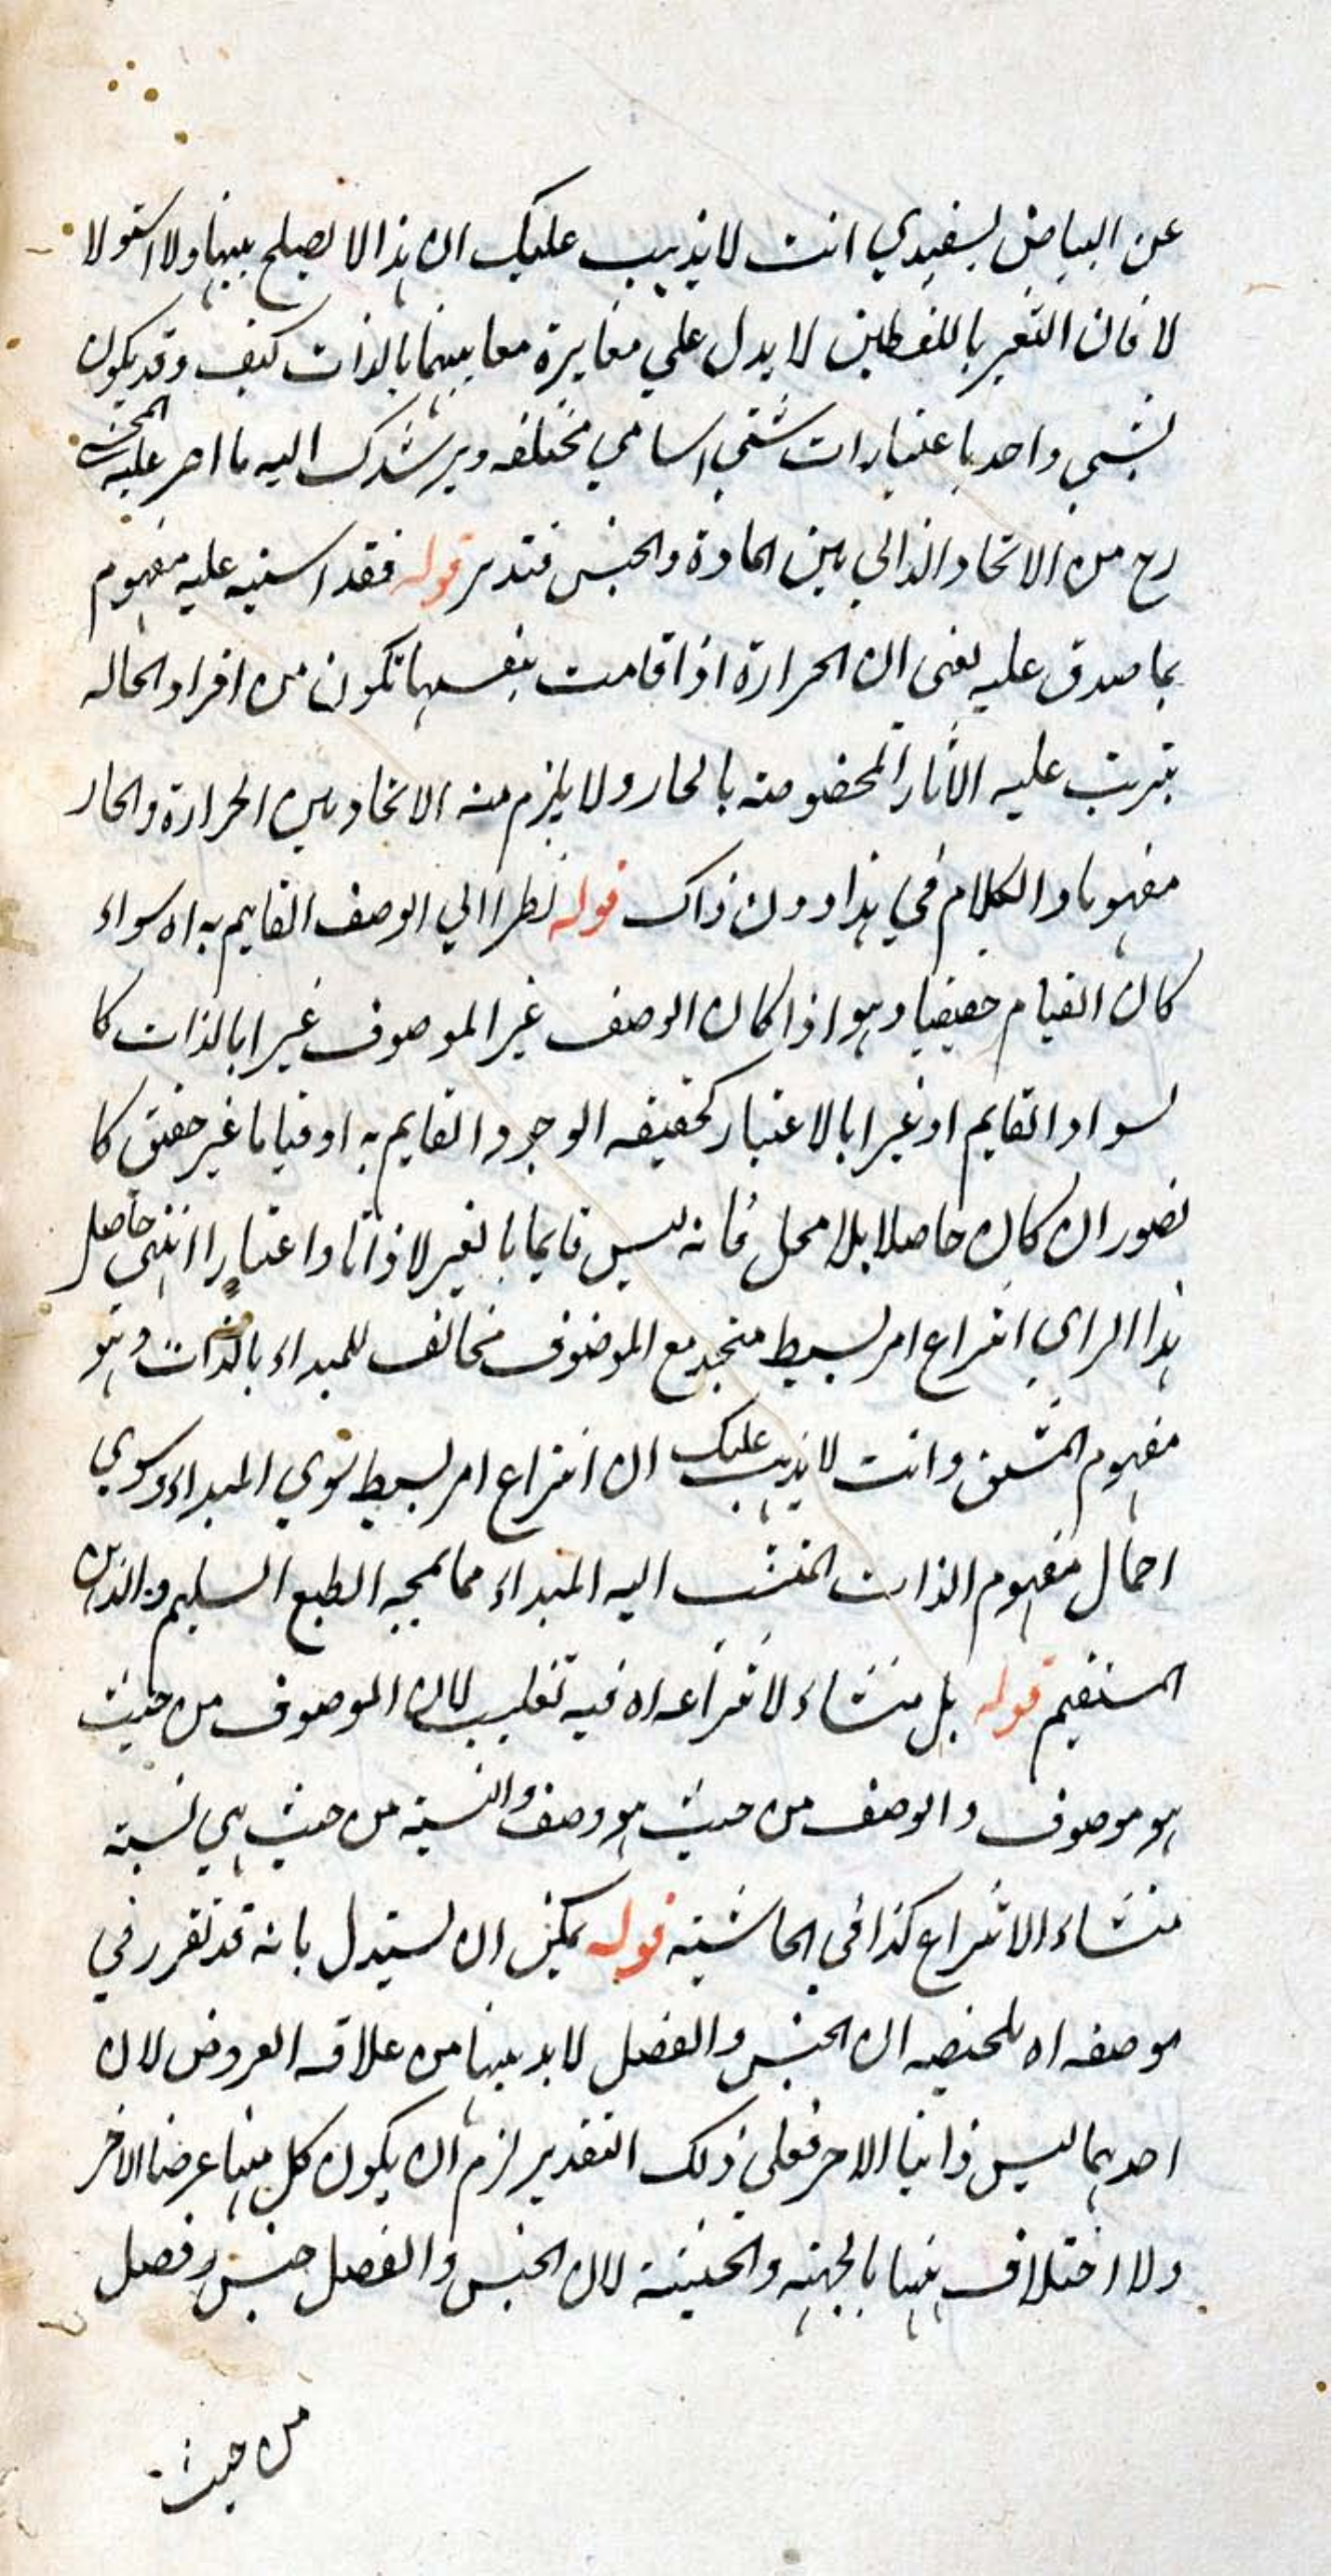 عن البياض بسفيدي انت لا يذهب عليك ان هذا لا يصلح بينها ولا استولا
لا فان التغير باللفظين لا يدل علي مغايرة معا بينهما بالذات كيف وقد يكون
لشيي واحد باعتبارات شتي اسامي مختلفه ويرشدك اليه ما اصر عليه المحشي
رح من الاتحاد الذاتي بين المادة والجنس فتدبر قوله فقد اشتبه عليه مفهوم
بما صدق عليه يعني ان الحرارة اذا قامت بنفسها تكون من افراد الحاله
يترتب عليه الاثار المخصوصته بالحار ولا يلزم منه الاتحاد بين الحرارة والحار
مفهوما والكلام في هذا دون ذاك قوله نظرا الي الوصف القايم به اه سواء
كان القيام حقيقيا وهو اذا كان الوصف غير الموصوف غيرا بالذات كا
لسواد القايم او غيرا بالاعتبار كحقيقه الوجود القايم به او قياما غير حقيقي كا
لضور ان كان حاصلا بلا محل فانه ليس قايما بالغير لا ذاتا واعتبارا انتهي حاصل
هذا الراي انتزاع امر بسيط متحد مع الموصوف مخالف للمبداء بالذات وهو
مفهوم المشتق وانت لا يذهب عليك ان انتزاع امر بسيط سوي المبداء وسوي
احمال مفهوم الذات المنتسب اليه المبداء مما يمجه الطبع السليم والذهن
المستقيم قوله بل منشاء لانتزاعه اه فيه تغليب لان الموصوف من حيث
هو موصوف والوصف من حيث هو وصف والنسبة من حيث هي نسبته
منشاء الانتزاع كذا في الحاشيته قوله يمكن ان يستدل بانه قد تقرر في
موضعه اه تلخيصه ان الجنس والفصل لابد بينها من علاقه العروض لان
احدهما ليس ذاتيا الاخر فعلي ذلك التقدير لزم ان يكون كل منها عرضا الاخر
ولا اختلاف بينها بالجهته والحيثية لان الجنس والفصل جنس وفصل
من حيث